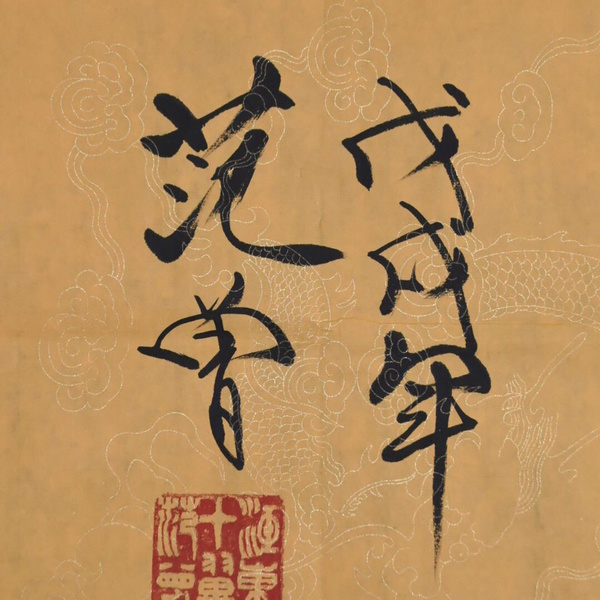 戊戌年
范曾
江東
十翼
范曾